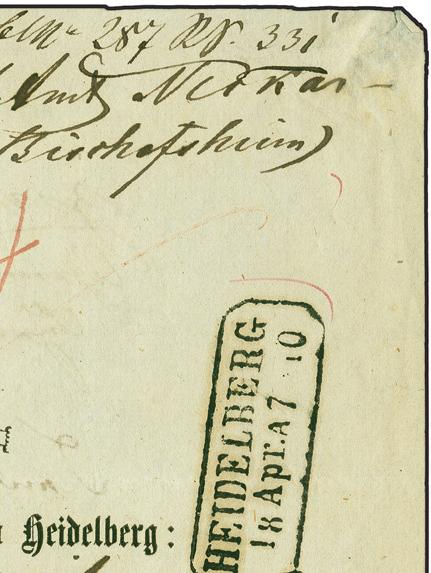 No 287 RP. 331
Amt Neckar-
Bischofsheim)
HEIDELBERG
18 Apr. a7 10
Heidelberg: